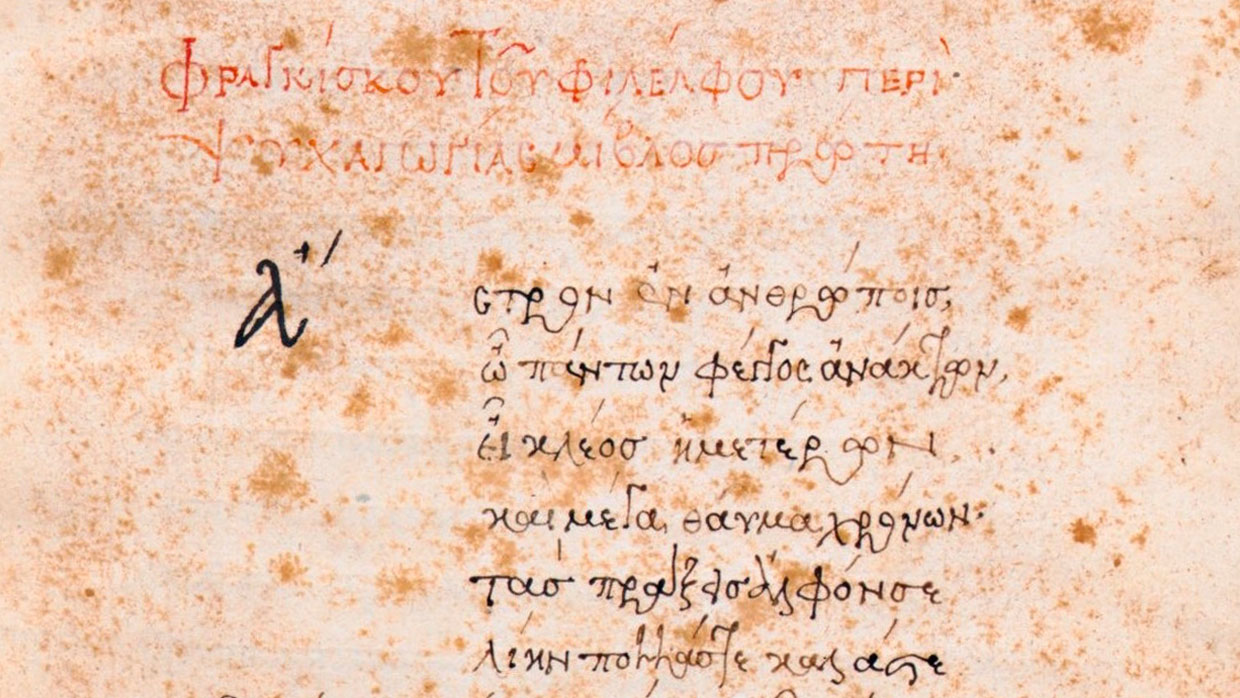 Φραγκίσκου τοῦ Φιλέλφου περὶ
ψυχαγωγίας βίβλος πρώτη
ἄ
στρον ἐν ἀνθρώποις,
ὦ πάντων φέγγος ἀνάκτων,
ἦ κλέος ἡμετέρων
καὶ μέγα θαῦμα χρόνων·
τὰς πράξεις Ἀλφόνσε